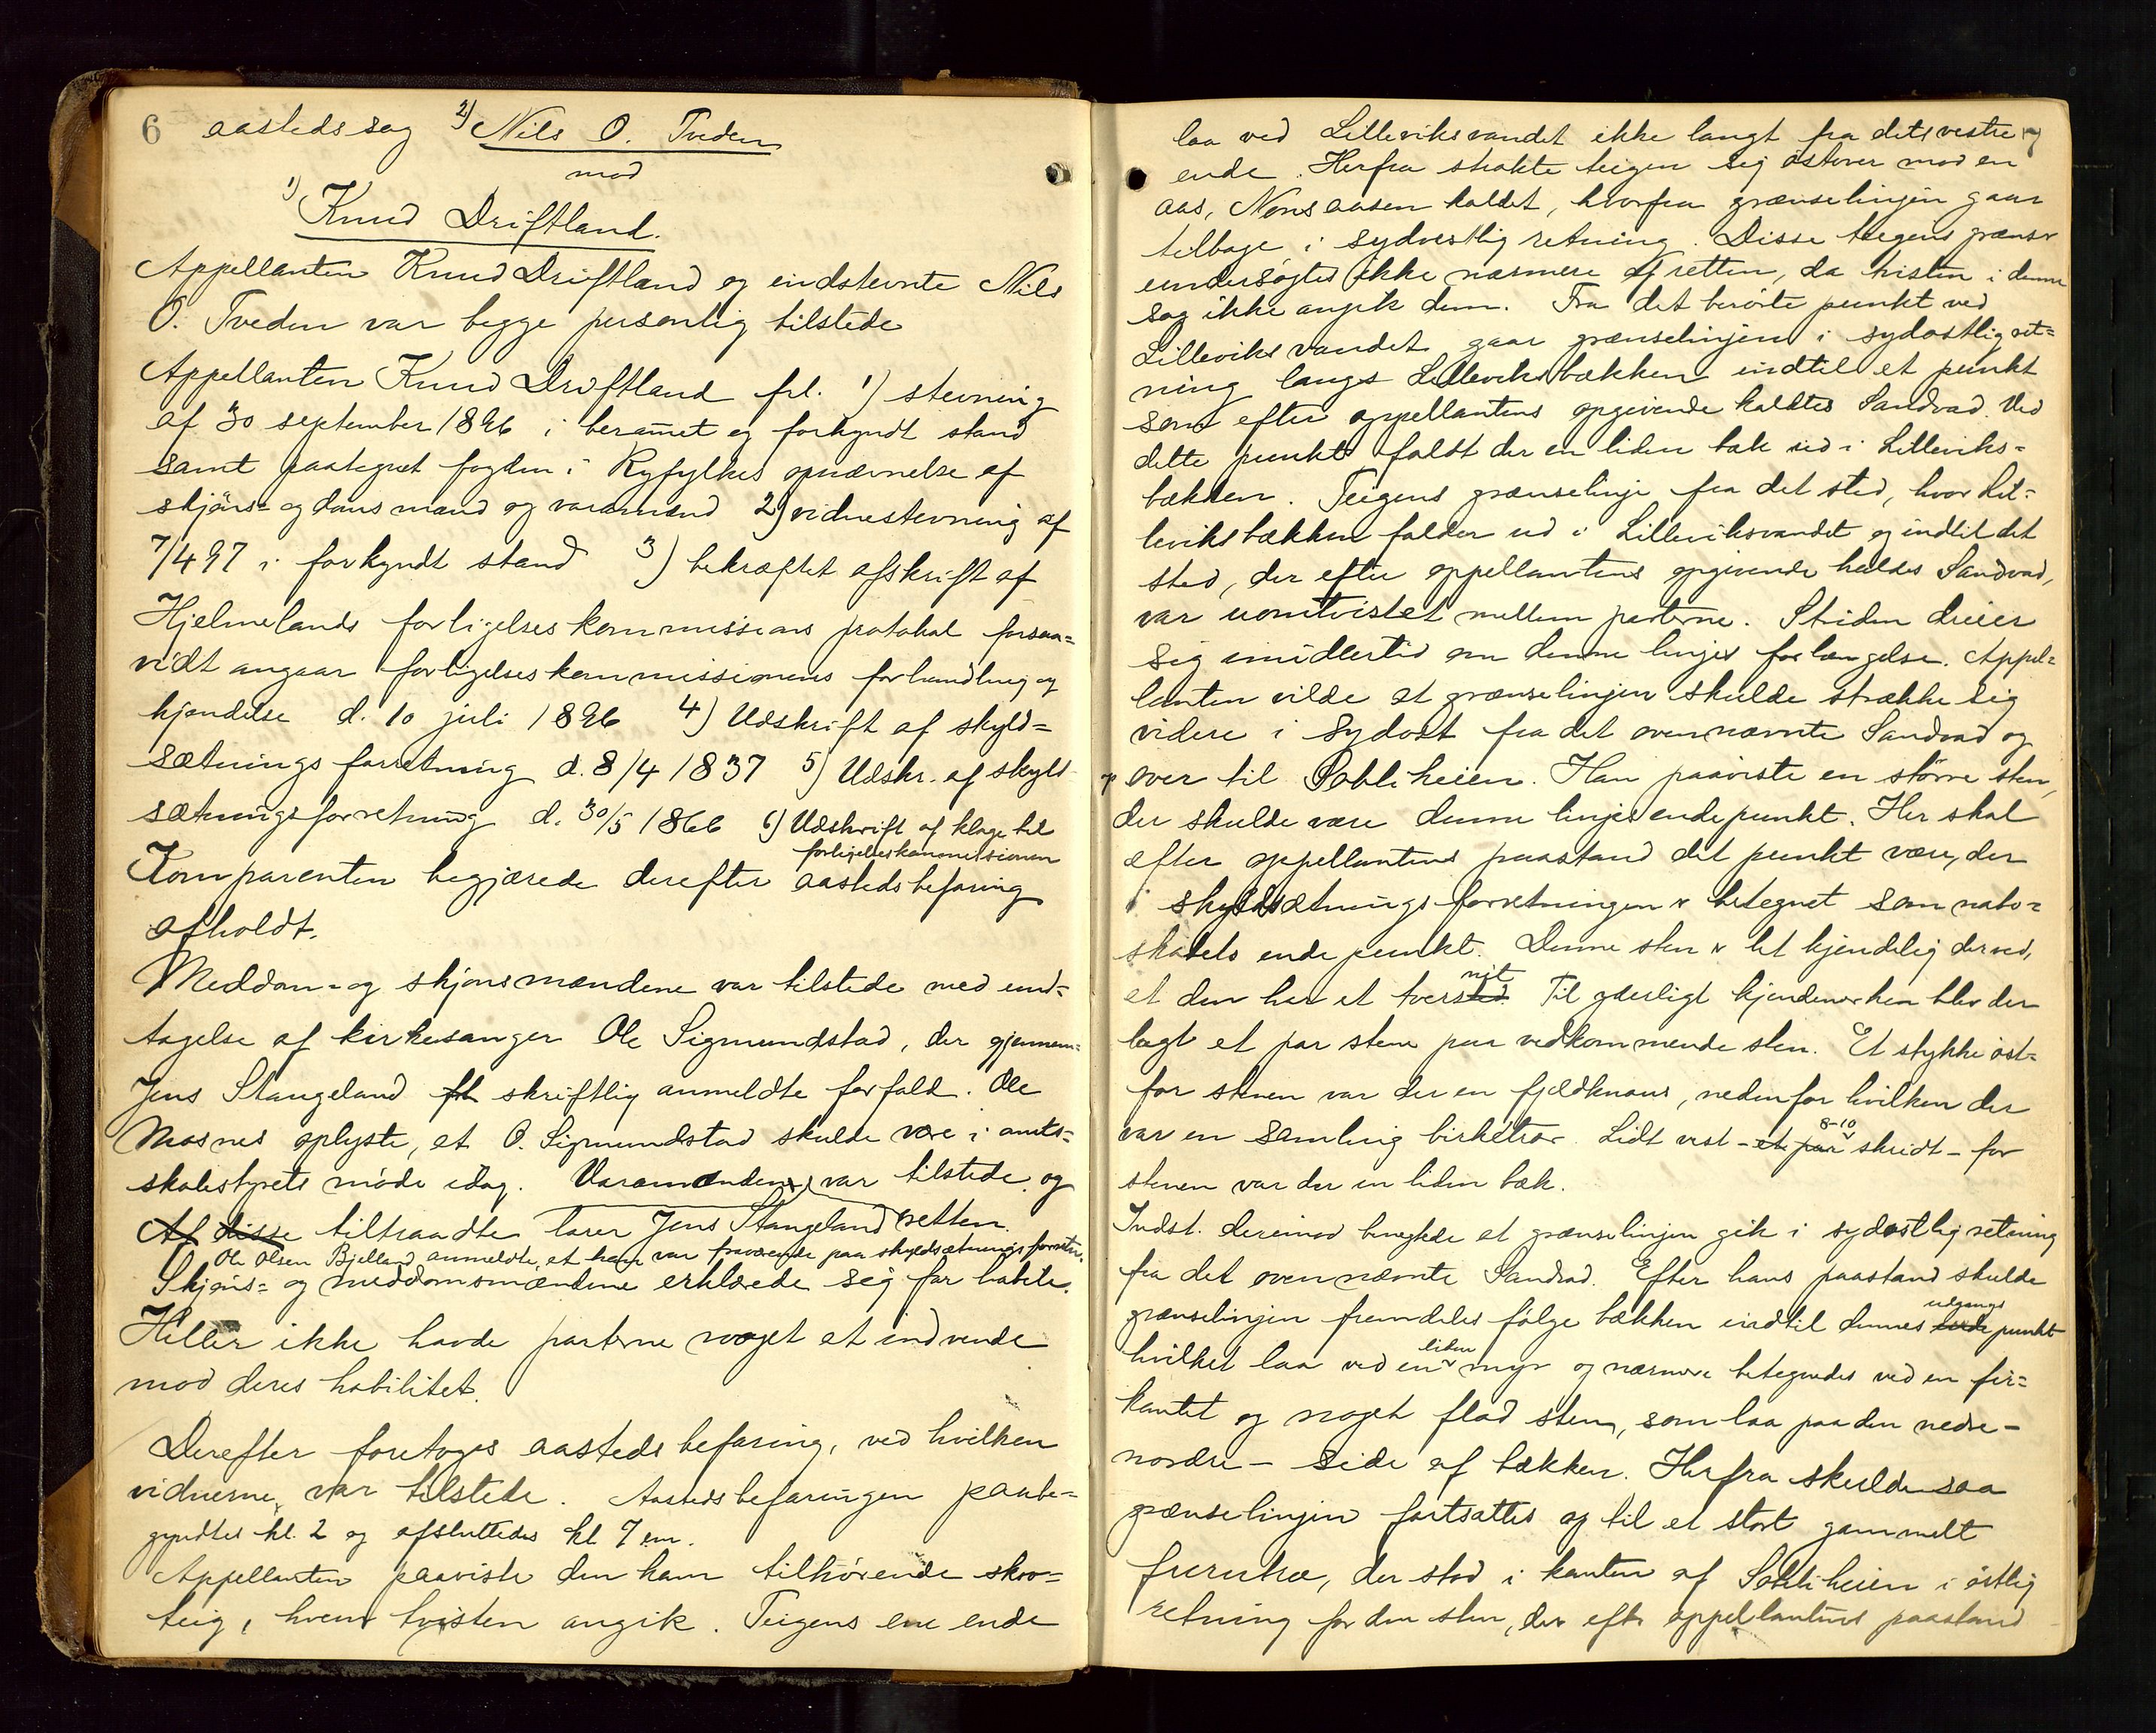 6 aastedssag 2) Nils O. Tveden
mod
1) Knud Driftland.
Appellanten Knud Driftland og indstevnte Nils
O. Tveden var begge personlig tilstede
Appellanten Knud Driftland frl. 1) stevning
af 30 september 1896 i beramet og forkyndt stand
samt paategnet fogden i Ryfylkes opnævnelse af
skjöns- og domsmænd og varamænd 2) vidnestevning af
7/4 97 i forkyndt stand 3) bekræftet afskrift af
Hjelmelands forligelseskommissions protokol forsaa-
vidt angaar forligelseskommissionens forhandling og
kjendelse d. 10 juli 1896 4) Udskrift af skyld-
sætningsforretning d. 8/4 1837 5) Udskr. af skyld-
sætningsforretning d. 30/5 1866 6) Udskrift af klage til
forligelseskommissionen
Komparenten begjærede derefter aastedsbefaring
afholdt.
Meddom- og skjönsmændene var tilstede med und-
tagelse af kirkesanger Ole Sigmundstad, der gjennem-
Jens Stangeland skriftlig anmeldte forfald. Ole
Mosnes oplyste, at O. Sigmundstad skulde være i amts-
skolestyrets möde idag. Varamændene var tilstede og
Af disse tiltraadte lærer Jens Stangeland retten.
Ole Olsen Bjelland anmeldte, at han var fraværende paa skyldsætningsforretn.
Skjöns- og meddomsmændene erklærede sig for habile.
Heller ikke havde parterne noget at indvende
mod deres habilitet.
Derefter foretoges aastedsbefaring, ved hvilken
vidnerne var tilstede. Aastedsbefaringen paabe-
gyndtes kl. 2 og afsluttedes kl 7 em.
Appellanten paaviste den ham tilhörende skov-
teig, hvem tvisten angik. Teigens ene ende
laa ved Lilleviksvandet ikke langt fra dets vestre
ende. Herfra strakte teigen sig östover mod en
aas, Nonsaasen kaldet, hvorfra grænselinjen gaar
tilbage i sydvestlig retning. Disse teigens grænser
undersögtes ikke nærmere af retten, da tvisten i denne
sag ikke angik dem. Fra det berörte punkt ved
Lilleviksvandet gaar grænselinjen i sydostlig ret-
ning langs Lilleviksbækken indtil et punkt
som efter appellantens opgivende kaldtes Sandvad. Ved
dette punkt faldt der en liden bæk ud i Lilleviks-
bækken. Teigens grænselinje fra det sted, hvor Lil-
leviksbækken falder ud i Lilleviksvandet og indtil det
sted, der efter appellantens opgivende kaldes Sandvad,
var uomtvistet mellem parterne. Striden dreier
sig imidlertid om denne linjes forlængelse. Appel-
lanten vilde at grænselinjen skulde strække sig
videre i sydost fra det ovennævnte Sandvad og
over til Sobliheien. Han paaviste en större sten,
der skulde være denne linjes endepunkt. Her skal
efter appellantens paastand det punkt være, der
i skyldsætningsforretningen er betegnet som nabo-
skabets endepunkt. Denne sten er let kjendelig derved,
at den har et tvers. Til yderligt kjendemerke blev der
lagt et par stene paa vedkommende sten. Et stykke öst-
for stenen var der en fjeldknaus, nedenfor hvilken der
var en samling birketrær. Lidt vest - et par 8-10 skridt - for
stenen var der en liden bæk.
Indst. derimod hævdede at grænselinjen gik i sydostlig retning
fra det ovennævnte Sandvad. Efter hans paastand skulde
grænselinjen fremdeles fölge bækken indtil dennes udgangspunkt
hvilket laa ved en liden myr og nærmere betegnedes ved en fir-
kantet og noget flad sten, som laa paa den nedre -
nordre - side af bækken. Herfra skulde saa
grænselinjen fortsættes op til et stort gammelt
furutræ, der stod i kanten af Sobliheien i östlig
retning for den sten, der efter appellantens paastand